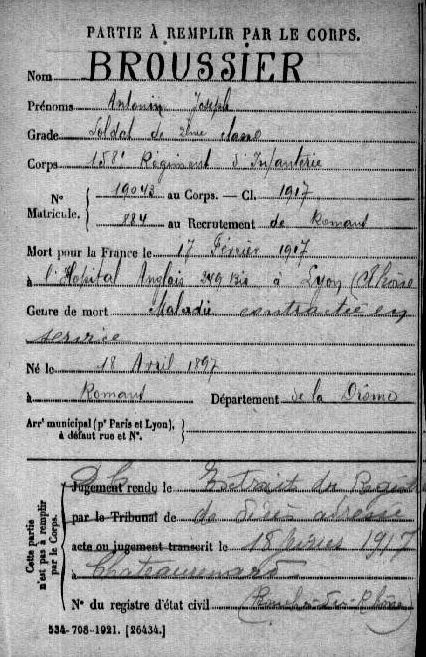 PARTIE À REMPLIR PAR LE CORPS.
Nom BROUSSIER
Prénoms Antonin Joseph
Grade Soldat de 2ème classe
Corps 158e Régiment d'Infanterie
N° Matricule. { 19043 au Corps. — Cl. 1917
884 au Recrutement de Romans
Mort pour la France le 17 Février 1917
à l'Hopital Anglais 249 bis à Lyon (Rhône
Genre de mort Maladie contractée en
service
Né le 18 Avril 1897
à Romans Département de la Drôme
Arr' municipal (p' Paris et Lyon), à défaut rue et N°.
Cette partie n'est pas à remplir par le Corps.
Jugement rendu le Extrait du Registre
par le Tribunal de de décès adressé
acte ou jugement transcrit le 18 février 1917
à Chateaurenard
N° du registre d'état civil (Bouches-du-Rhône)
534-708-1921. [26434.]